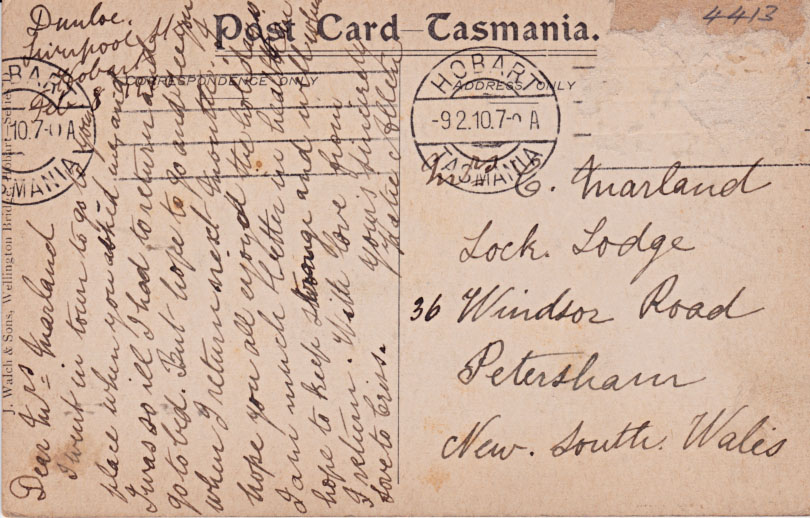 4413
Post Card Tasmania.
CORRESPONDENCE ONLY
ADDRESS ONLY
HOBART
-9 2.10.7-0 A
TASMANIA
Mrs C. Marland
Lock. Lodge
36 Windsor Road
Petersham
New. South. Wales
Dunloe.
Liverpool St
Hobart
Feb 8
Dear Mrs Marland
I went in town to go to your
place when you asked me, and
I was so ill I had to return and
go to bed. But hope to go and see you
when I return next month.
hope you all enjoyed the holidays
I am much better in health
hope to keep strong and will when
I return. With love from
yours sincerely
Katie Allen
love to Cris.
BART
.10.7-0 A
MANIA
J. Walch & Sons, Wellington Bridge, Hobart. Series